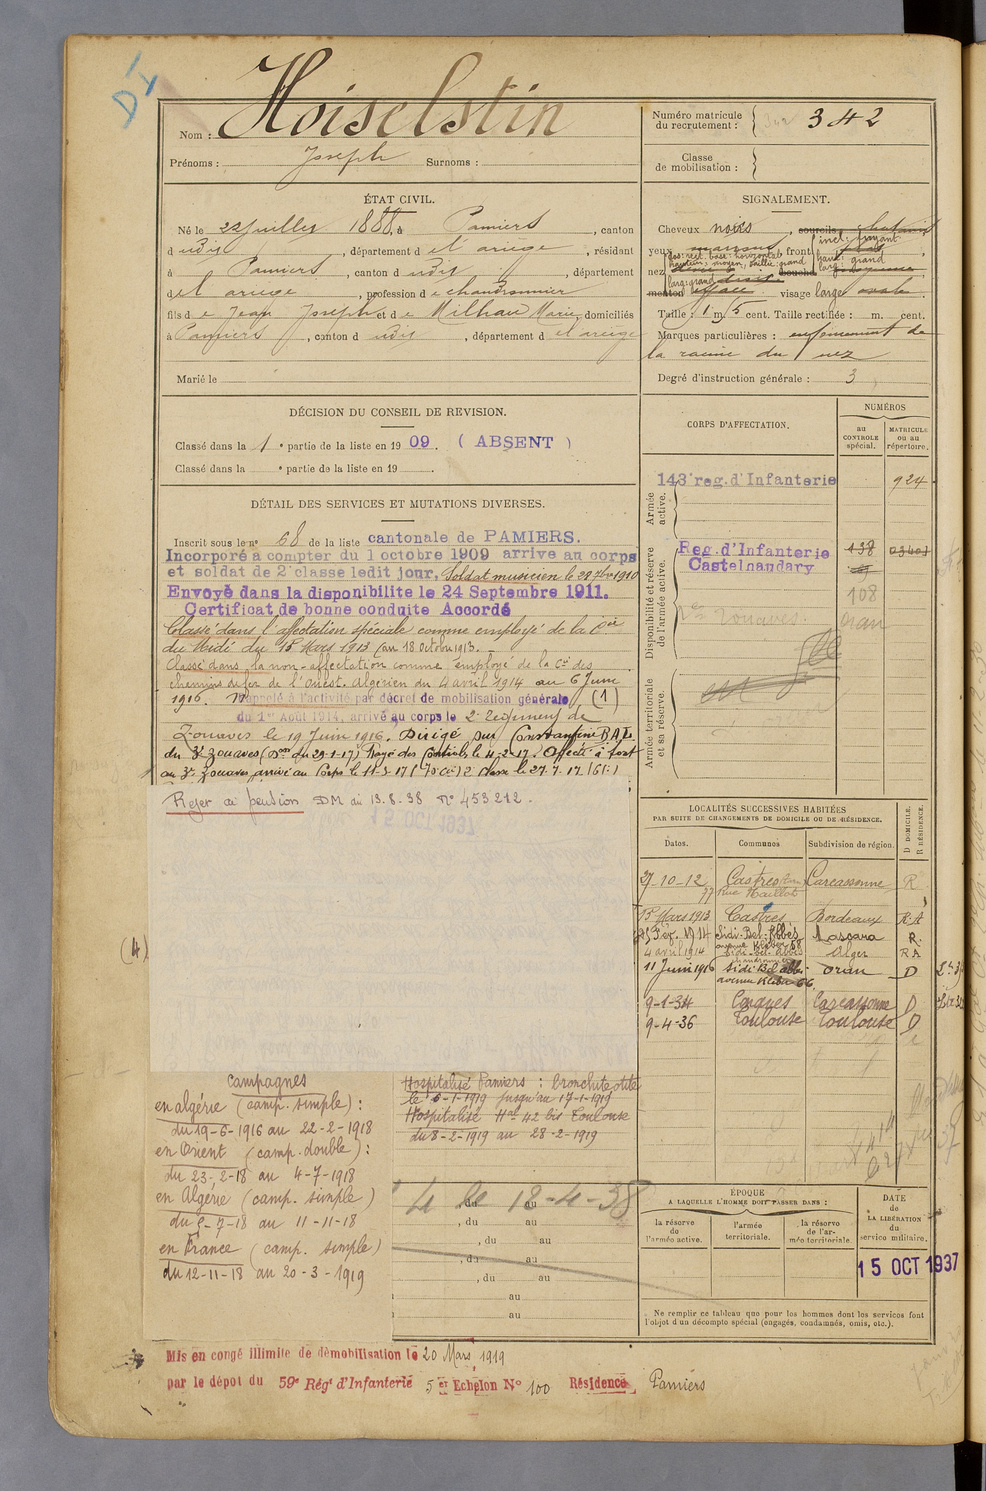 DI
Nom : Hoiselstin
Prénoms : Joseph Surnoms :
Numéro matricule
du recrutement : 342
Classe
de mobilisation :
ÉTAT CIVIL.
Né le 22 Juillet 1888, à Pamiers, canton
d udit, département d e l'ariège, résidant
à Pamiers, canton d udit, département
d el ariège, profession d e chaudronnier
fils d e Jean Joseph et d e Milhau Marie, domiciliés
à Pamiers, canton d udit, département d el ariège
Marié le
SIGNALEMENT.
Cheveux noirs, sourcils châtains
yeux marrons, front incl: fuyant
haut: grand
larg:
dos: rect. base: horizontal
hauteur: moyen, saillie: grand
nez bouche
larg: grand
menton efface visage large ovale
Taille : 1 m. 5 cent. Taille rectifiée : m. cent.
Marques particulières : enfoncement de
la racine du nez
Degré d'instruction générale : 3
DÉCISION DU CONSEIL DE REVISION.
Classé dans la 1 e partie de la liste en 19 09. ( ABSENT )
Classé dans la e partie de la liste en 19
DÉTAIL DES SERVICES ET MUTATIONS DIVERSES.
Inscrit sous le n° 68 de la liste cantonale de PAMIERS.
Incorporé à compter du 1 octobre 1909 arrive au corps
et soldat de 2e classe ledit jour. Soldat musicien le 29 7bre 1910
Envoyé dans la disponibilite le 24 Septembre 1911.
Certificat de bonne conduite Accordé
Classé dans l'affectation spéciale comme employé de la Cie
du Midi du 15 Mars 1913 (au 18 octobre 1913.
Classé dans la non-affectation comme employé de la Cie des
chemins de fer de l'Ouest. Algérien du 4 avril 1914 au 6 Juin
1916. Rappelé à l'activité par décret de mobilisation générale (1)
du 1er Août 1914, arrivé au corps le 2e Régiment de
Zouaves le 19 Juin 1916. Dirigé sur Constantine
du 3e Zouaves (Don du 29-1-17) Rayé des Contrôles le 4-2-17. Affecté
au 3e Zouaves, arrivé au Corps le 11-3-17 (70 Cie) 2e classe le 27.7.17
Rejet de pension DM du 13.8.38 N° 453212.
15 OCT 1937
(4)
Campagnes
en algérie (camp. simple) :
du 19-6-1916 au 22-2-1918
en Orient (camp. double) :
du 23-2-18 au 4-7-1918
en Algérie (camp. simple)
du 5-7-18 au 11-11-18
en France (camp. simple)
du 12-11-18 au 20-3-1919
Hospitalisé Pamiers : bronchite otite
le 6-1-1919 jusqu'au 17-1-1919
Hospitalisé Hal 42 bis Toulouse
du 8-2-1919 au 28-2-1919
4 le 18-4-38
, du au
, du au
, du au
, du au
, du au
au
au
CORPS D'AFFECTATION.
NUMÉROS
au
CONTROLE
spécial.
MATRICULE
ou au
répertoire.
Armée
active.
143e reg. d'Infanterie 924
Disponibilité et réserve
de l'armée active.
Reg. d'Infanterie 138
Castelnaudary
108
Zouaves Oran
Armée territoriale
et sa réserve.
LOCALITÉS SUCCESSIVES HABITÉES
PAR SUITE DE CHANGEMENTS DE DOMICILE OU DE RÉSIDENCE.
Dates. Communes Subdivision de région. D DOMICILE. R RÉSIDENCE.
27-10-12 Castres Carcassonne R
77 Rue Maillot
15 Mars 1913 Castres Bordeaux R.A
25 Fév. 1914 Sidi-Bel-Abbès Mascara R.
avenue Kléber 68
4 avril 1914 Sidi-bel-abbès Alger RA
11 Juin 1916 Sidi Bel abbès Oran D
avenue Kléber 66
9-1-34 Conques Carcassonne D
9-4-36 Toulouse Toulouse D
ÉPOQUE
A LAQUELLE L'HOMME DOIT PASSER DANS :
la réserve
de l'armée active.
l'armée
territoriale.
la réserve
de l'ar-
mée territoriale.
DATE
de
LA LIBÉRATION
du
service militaire.
15 OCT 1937
Ne remplir ce tableau que pour les hommes dont les services font
l'objet d'un décompte spécial (engagés, condamnés, omis, etc.).
Mis en congé illimité de démobilisation le 20 Mars 1919
par le dépôt du 59e Régt d'Infanterie 5 er Echelon N° 100 Résidence Pamiers